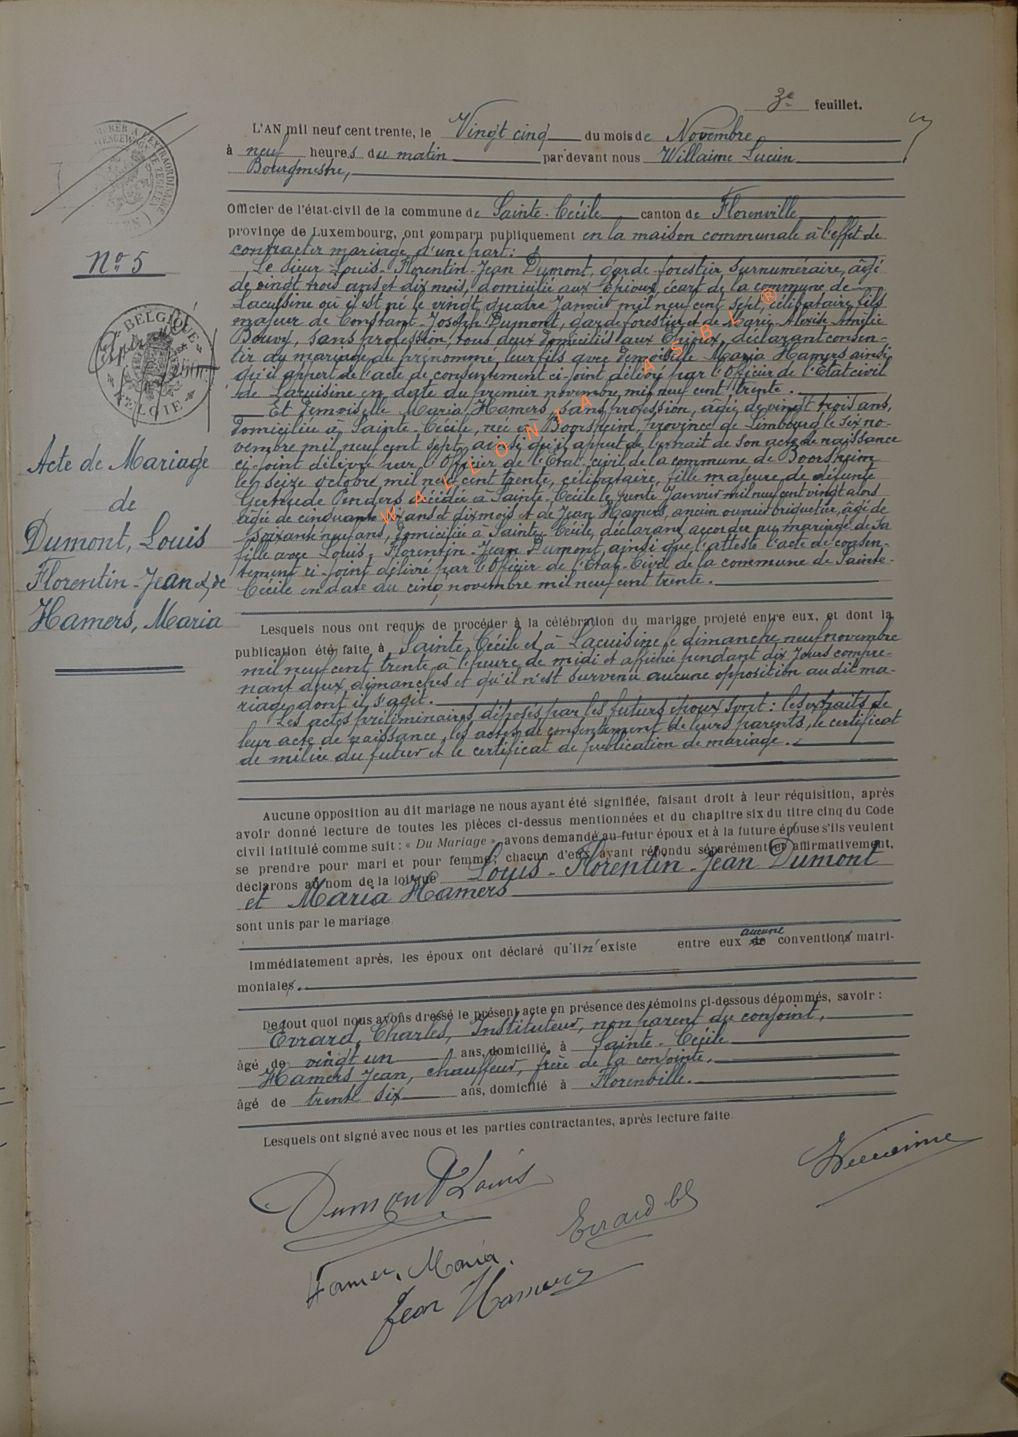 3e feuillet.
L'AN mil neuf cent trente, le Vingt cinq du mois de Novembre
à neuf heures du matin par devant nous Willaime Lucien
Bourgmestre,
Officier de l'état-civil de la commune de Sainte-Cécile canton de Florenville
province de Luxembourg, ont comparu publiquement en la maison communale à l'effet de
contracter mariage d'une part:
Le sieur Louis-Florentin-Jean Dumont, garde-forestier surnuméraire, âgé
de vingt trois ans et dix mois, domicilié aux Epioux, écart de la commune de
Lacuisine où il est né le vingt quatre Janvier mil neuf cent sept, célibataire, fils
majeur de Constant-Joseph Dumont, garde forestier et de Marie-Aloïse-Amélie
Bouvy, sans profession, tous deux domiciliés aux Epioux, déclarant consen-
tir au mariage du prénommé, leur fils avec demoiselle Maria Hamers ainsi
qu'il appert de l'acte de consentement ci-joint délivré par l'Officier de l'Etat civil
de Lacuisine en date du premier novembre mil neuf cent trente.
Et demoiselle Maria Hamers, sans profession, âgée de vingt trois ans,
domiciliée à Sainte-Cécile, née à Boorsheim, province de Limbourg le six no-
vembre mil neuf cent sept, ainsi qu'il appert de l'extrait de son acte de naissance
ci-joint délivré par l'Officier de l'Etat-civil de la commune de Boorsheim
le seize octobre mil neuf cent trente, célibataire, fille majeure de défunte
Gertrude Penders décédée à Sainte-Cécile le trente Janvier mil neuf cent vingt alors
âgée de cinquante ans et dix mois et de Jean Hamers, ancien ouvrier briquetier, âgé de
soixante neuf ans, domicilié à Sainte-Cécile, déclarant accorder au mariage de sa
fille avec Louis-Florentin-Jean Dumont, ainsi que l'atteste l'acte de consen-
tement ci-joint délivré par l'Officier de l'Etat-Civil de la commune de Sainte-
Cécile en date du cinq novembre mil neuf cent trente.
Lesquels nous ont requis de procéder à la célébration du mariage projeté entre eux, et dont la
publication été faite à Sainte-Cécile et à Lacuisine le dimanche neuf novembre
mil neuf cent trente à l'heure de midi et affichée pendant dix jours compre-
nant deux dimanches et qu'il n'est survenu aucune opposition au dit ma-
riage dont il s'agit.
Les actes préliminaires déposés par les futurs époux sont : les extraits de
leur acte de naissance, les actes de consentement de leurs parents, le certificat
de milice du futur et le certificat de publication de mariage.
Aucune opposition au dit mariage ne nous ayant été signifiée, faisant droit à leur réquisition, après
avoir donné lecture de toutes les pièces ci-dessus mentionnées et du chapitre six du titre cinq du Code
civil intitulé comme suit : « Du Mariage » avons demandé au futur époux et à la future épouse s'ils veulent
se prendre pour mari et pour femme; chacun d'eux ayant répondu séparément et affirmativement,
déclarons au nom de la loi que Louis-Florentin-Jean Dumont
et Maria Hamers
sont unis par le mariage
Immédiatement après, les époux ont déclaré qu'il n'existe entre eux aucune de conventions matri-
moniales.
De tout quoi nous avons dressé le présent acte en présence des témoins ci-dessous dénommés, savoir :
Evrard, Charles, Instituteur, non parent du conjoint,
âgé de vingt un ans, domicilié à Sainte-Cécile
Hamers Jean, chauffeur, frère de la conjointe,
âgé de trente six ans, domicilié à Florenville.
Lesquels ont signé avec nous et les parties contractantes, après lecture faite
Dumont Louis
Willaime
Evrard Ch
Hamers, Maria.
Jean Hamers
No 5
BELGIQUE
BELGIE
Acte de Mariage
de
Dumont, Louis
Florentin-Jean et de
Hamers, Maria
WALLONIA ASBL ©